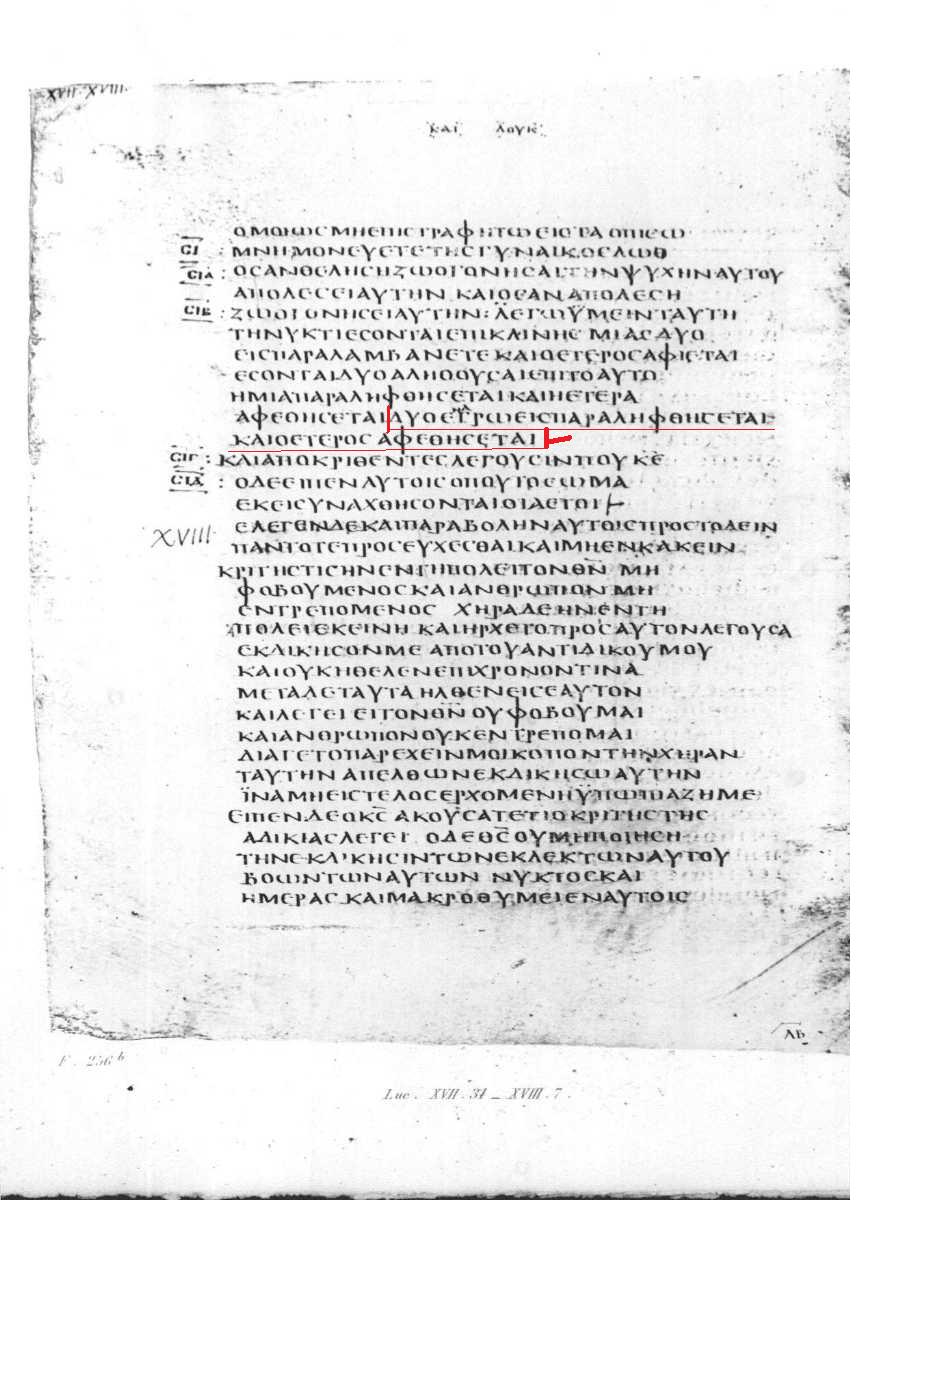 XVII·XVIII·
ΚΑΙ ΛΟΥΚ
ΟΜΟΙΩΣΜΗΕΠΙΣΤΡΑΦΗΤΩΕΙΣΤΑΟΠΙΣΩ
ϹΙ : ΜΝΗΜΟΝΕΥΕΤΕΤΗϹΓΥΝΑΙΚΟϹΛΩΘ
ϹΙΑ : ΟϹΑΝΘΕΛΗϹΗΖΩΟΓΟΝΗϹΑΙΤΗΝΨΥΧΗΝΑΥΤΟΥ
ΑΠΟΛΕϹΕΙΑΥΤΗΝ ΚΑΙΟϹΑΝΑΠΟΛΕϹΗ
ϹΙΒ : ΖΩΟΓΟΝΗϹΕΙΑΥΤΗΝ: ΛΕΓΩΫΜΕΙΝΤΑΥΤΗ
ΤΗΝΥΚΤΙΕϹΟΝΤΑΙΕΠΙΚΛΙΝΗϹ ΜΙΑϹΔΥΟ
ΕΙϹΠΑΡΑΛΑΜΒΑΝΕΤΕ ΚΑΙΟΕΤΕΡΟϹΑΦΙΕΤΑΙ
ΕϹΟΝΤΑΙΔΥΟΑΛΗΘΟΥϹΑΙΕΠΙΤΟΑΥΤΟ
ΗΜΙΑΠΑΡΑΛΗΦΘΗϹΕΤΑΙΚΑΙΗΕΤΕΡΑ
ΑΦΕΘΗϹΕΤΑΙΔΥΟΕΝΑΓΡΩΕΙϹΠΑΡΑΛΗΦΘΗϹΕΤΑΙ
ΚΑΙΟΕΤΕΡΟϹΑΦΕΘΗϹΕΤΑΙ
ϹΙΓ : ΚΑΙΑΠΟΚΡΙΘΕΝΤΕϹΛΕΓΟΥϹΙΝΠΟΥΚΕ
ϹΙΔ : ΟΔΕΕΙΠΕΝΑΥΤΟΙϹΟΠΟΥΤΟϹΩΜΑ
ΕΚΕΙϹΥΝΑΧΘΗϹΟΝΤΑΙΟΙΑΕΤΟΙ
XVIII· ΕΛΕΓΕΝΔΕΚΑΙΠΑΡΑΒΟΛΗΝΑΥΤΟΙϹΠΡΟϹΤΟΔΕΙΝ
ΠΑΝΤΟΤΕΠΡΟϹΕΥΧΕϹΘΑΙΚΑΙΜΗΕΝΚΑΚΕΙΝ
ΚΡΙΤΗϹΤΙϹΗΝΕΝΤΗΠΟΛΕΙΤΟΝΘΝ ΜΗ
ΦΟΒΟΥΜΕΝΟϹΚΑΙΑΝΘΡΩΠΟΝΜΗ
ΕΝΤΡΕΠΟΜΕΝΟϹ ΧΗΡΑΔΕΗΝΕΝΤΗ
ΠΟΛΕΙΕΚΕΙΝΗ ΚΑΙΗΡΧΕΤΟΠΡΟϹΑΥΤΟΝΛΕΓΟΥϹΑ
ΕΚΔΙΚΗϹΟΝΜΕ ΑΠΟΤΟΥΑΝΤΙΔΙΚΟΥΜΟΥ
ΚΑΙΟΥΚΗΘΕΛΕΝΕΠΙΧΡΟΝΟΝΤΙΝΑ
ΜΕΤΑΔΕΤΑΥΤΑ ΗΛΘΕΝΕΙϹΕΑΥΤΟΝ
ΚΑΙΛΕΓΕΙ ΕΙΤΟΝΘΝ ΟΥΦΟΒΟΥΜΑΙ
ΚΑΙΑΝΘΡΩΠΟΝΟΥΚΕΝΤΡΕΠΟΜΑΙ
ΔΙΑΓΕΤΟΠΑΡΕΧΕΙΝΜΟΙΚΟΠΟΝΤΗΝΧΗΡΑΝ
ΤΑΥΤΗΝ ΑΠΕΛΘΩΝΕΚΔΙΚΗϹΩΑΥΤΗΝ
ΪΝΑΜΗΕΙϹΤΕΛΟϹΕΡΧΟΜΕΝΗΫΠΩΠΙΑΖΗΜΕ
ΕΙΠΕΝΔΕΟΚϹ ΑΚΟΥϹΑΤΕΤΙΟΚΡΙΤΗϹΤΗϹ
ΑΔΙΚΙΑϹΛΕΓΕΙ ΟΔΕΘϹΟΥΜΗΠΟΙΗϹΗ
ΤΗΝΕΚΔΙΚΗϹΙΝΤΩΝΕΚΛΕΚΤΩΝΑΥΤΟΥ
ΒΟΩΝΤΩΝΑΥΤΩΝ ΝΥΚΤΟϹΚΑΙ
ΗΜΕΡΑϹΚΑΙΜΑΚΡΟΘΥΜΕΙΕΝΑΥΤΟΙϹ
ΛΒ
F. 256 b
Luc. XVII. 31 _ XVIII. 7.